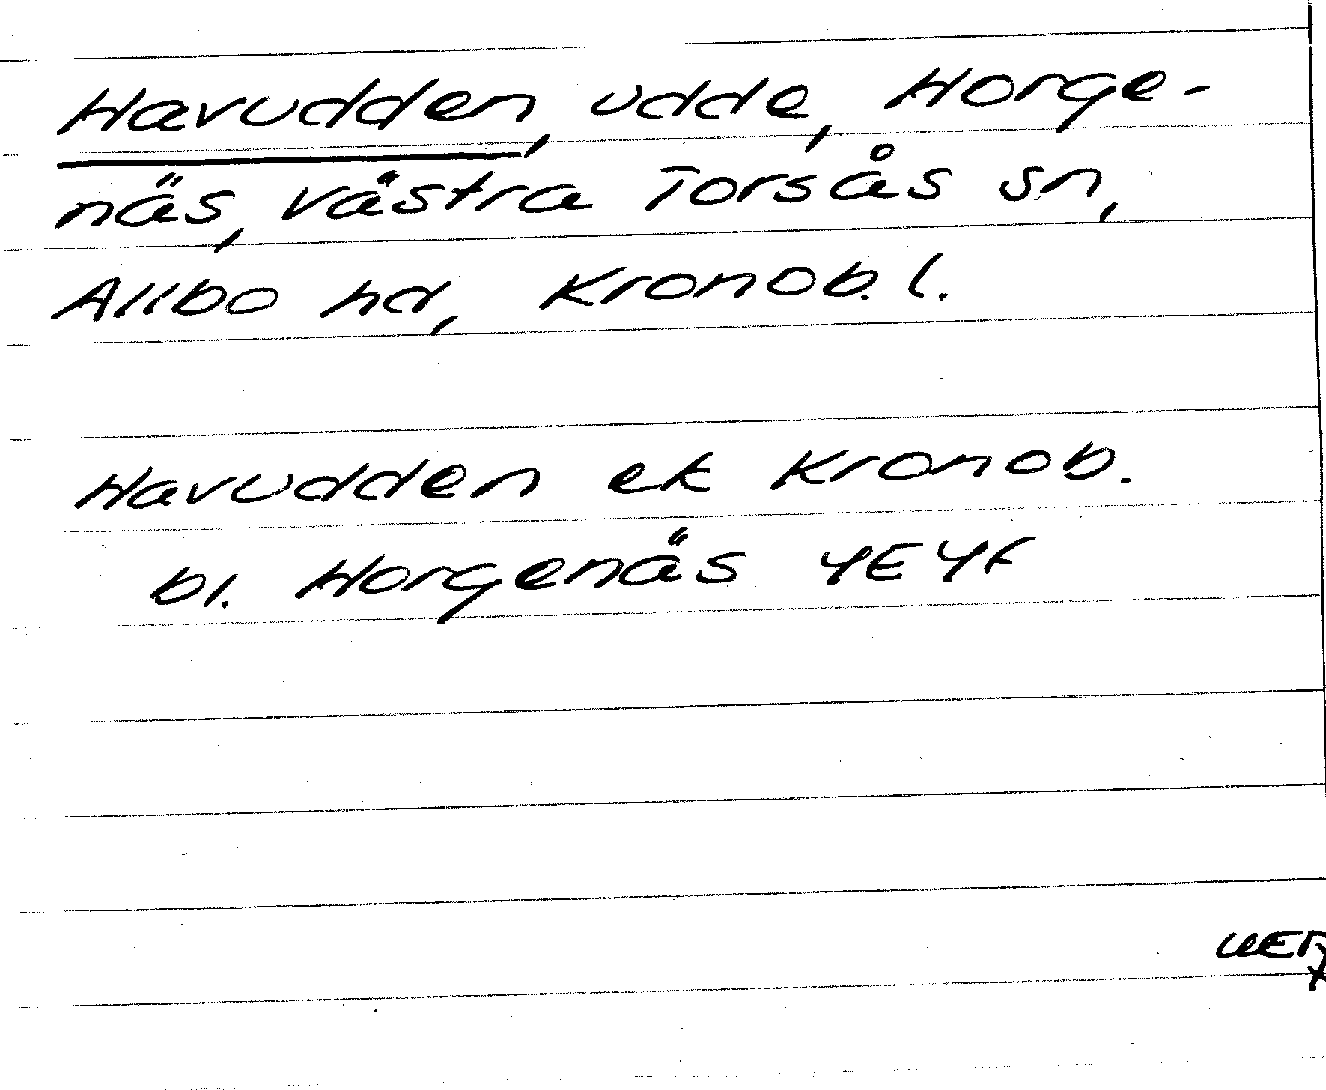 Havudden, udde, Horge-
näs, västra Torsås sn,
Allbo hd, Kronob. l.
Havudden ek Kronob.
bl. Horgenäs 4E4f